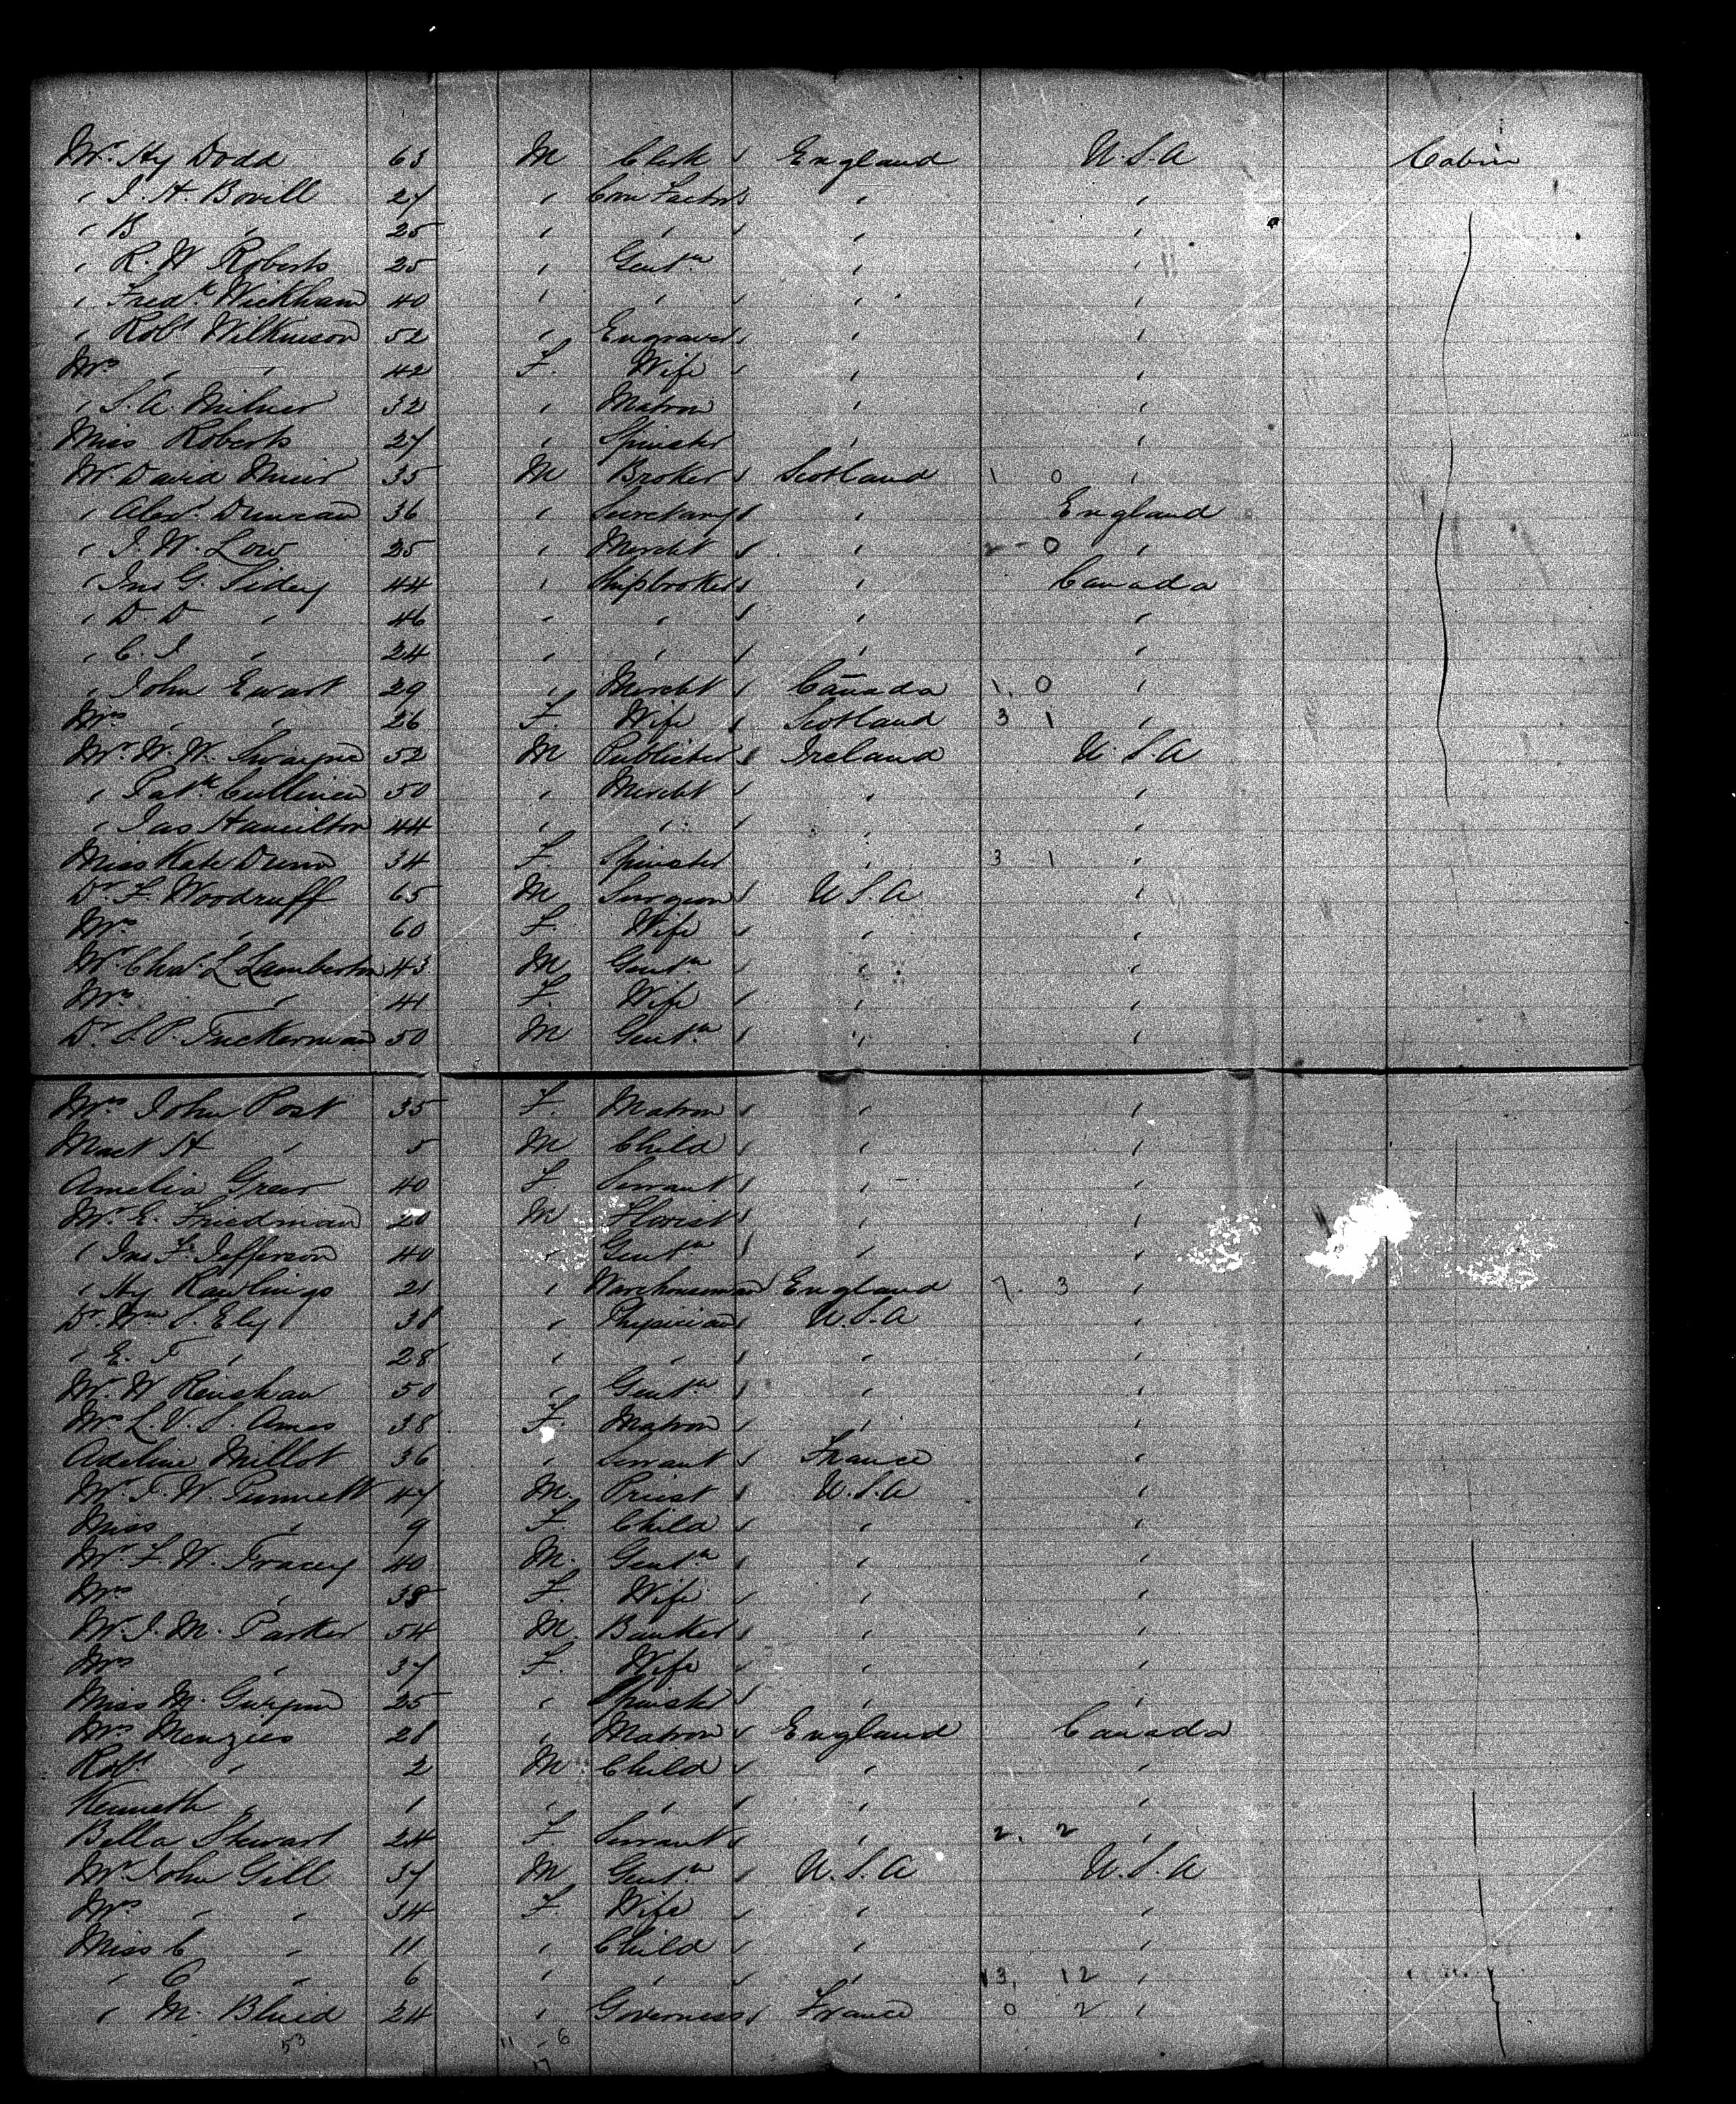 Mr. Hy Dodd 63 M Clerk England U.S.A Cabin
" J. H. Bovill 27 " Corn Factor " "
" B " 25 " " " "
" R. W Roberts 25 " Gentn " "
" Fredk Wickham 40 " " " "
" Robt Wilkinson 52 " Engraver " "
Mrs " " 42 F. Wife " "
" S. A. Milner 32 " Matron " "
Miss Roberts 27 " Spinster " "
Mr. David Muir 35 M Broker Scotland 1 0 "
" Alexr. Duncan 36 " Secretary " England
" J. W. Low 25 " Mercht " 2 - 0 "
" Jno G. Sidey 44 " Shipbroker " Canada
" D. D " 46 " " " "
" C. J " 24 " " " "
" John Ewart 29 " Mercht Canada 1. 0 "
Mrs " " 26 F. Wife Scotland 3 1 "
Mr. W. W. Swayne 52 M Publisher Ireland U.S.A
" Patk Cullinen 50 " Mercht " "
" Jas Hamilton 44 " " " "
Miss Kate Dunn 34 F. Spinster " 3 1 "
Dr. F. Woodruff 65 M Surgeon U.S.A "
Mrs " 60 F. Wife " "
Mr. Chas. L Lamberton 43 M Gentn " "
Mrs " 41 F. Wife " "
Dr. S. P. Tuckerman 50 M Gentn " "
Mrs John Post 35 F. Matron " "
Mast H " 5 M Child " "
Amelia Greer 40 F. Servant " "
Mr. E. Friedman 20 M Florist " "
" Jno F. Jefferson 40 " Gentn " "
" Hy Rawlings 21 " Warehouseman England 7. 3 "
Dr. Wm S. Ely 38 " Physician U.S.A "
" E. T " 28 " " " "
Mr. W Renshaw 50 " Gentn " "
Mrs L. V. S. Ames 38 F. Matron " "
Adeline Millot 36 " Servant France "
Mr. T. W. Punnett 47 M. Priest U.S.A "
Miss " 9 F. Child " "
Mr. F. W. Tracey 40 M. Gentn " "
Mrs " 38 F. Wife " "
Mr. J. M. Parker 54 M. Banker " "
Mrs " 37 F. Wife " "
Miss M. 25 " Spinster " "
Mrs Menzies 28 " Matron England Canada
Robt " 2 M Child " "
Kenneth " 1 " " " "
Bella Stewart 24 F Servant " 2. 2 "
Mr. John Gill 37 M Gentn U.S.A U.S.A
Mrs " " 34 F. Wife " "
Miss C " 11 " Child " "
" C " 6 " " " 13. 12 "
" M. Bluid 24 " Governess France 0 2 "
53 11 - 6
17